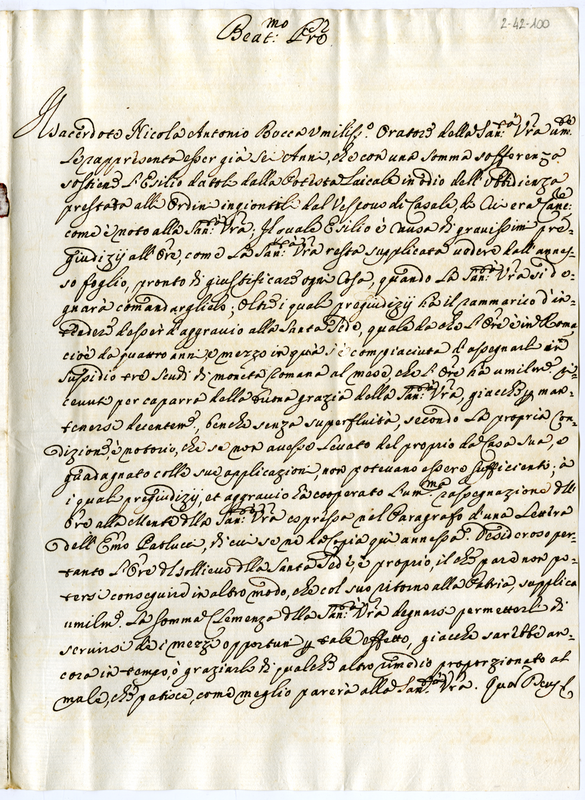 2-42-100
Beat:mo Pre
Il Sacerdote Nicola Antonio Bocca umiliss:o Oratore della San:tà V'ra um:te
le rappresenta esser già sei Anni, che con una somma sofferenza
sostiene l'Esilio datoli dalla Potestà Laicale in odio dell'Ubbidienza
prestata alli Ordini ingiontili dal Vescovo di Casale, di cui era
come è noto alla San:tà V'ra. Il quale Esilio è causa di gravissimi pre-
giudizij all'Ore, come la San:tà V'ra resta supplicata vedere dall'annes-
so foglio, pronto di giustificare ogni Cosa, quando la San:tà V'ra si de-
gnarà comandarglielo; Oltre i quali pregiudizij ha il rammarico d'in-
tendere d'esser d'aggravio alla Santa Sede, quale da che l'Ore è in Roma
cioè da quattro anni e mezzo in quà si è compiaciuta d'assegnarli un
sussidio tre scudi di moneta Romana al mese, che l'Ore ha umilme ri-
cevuti per caparra della buona grazia della San:tà V'ra, giacche p man-
tenersi decentem:, benche senza superfluità, secondo la propria Con-
dizione, è notorio, che se non avesse levato del proprio da Casa sua, e
guadagnato colle sue applicazioni, non potevano essere sufficienti; à
i quali pregiudizij, et aggravio hà cooperato l'um:ma rassegnazione dell'
Ore alla Mente della San:tà V'ra espressa nel Paragrafo d'una Lettera
dell'Emo Paolucci, di cui se ne dà copia qui annessa. Desideroso per-
tanto l'Ore del sollievo della Santa Sede, e proprio, il che però non po-
tersi conseguire in altro modo, che col suo ritorno alla Patria, supplica
umilme. la somma Clemenza della San:tà V'ra degnarsi permetterli di
servirsi de i mezzi opportuni p tale effetto, giacche sarebbe an-
cora in tempo, ò graziarlo di qualche altro rimedio proporzionato al
male, che patisce, come meglio parerà alla San:tà V'ra. Qual